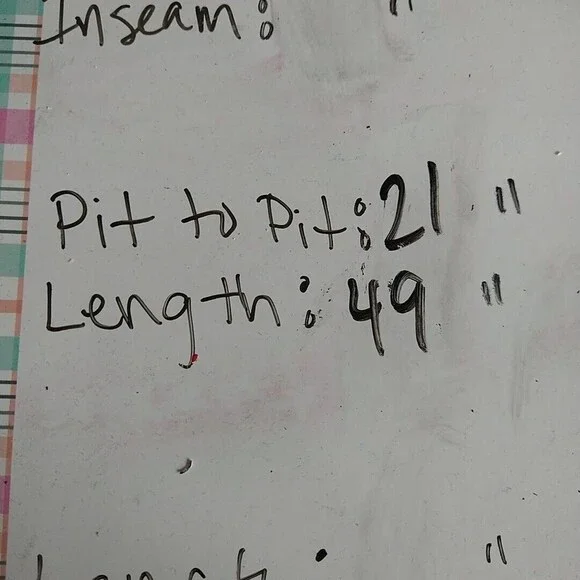 Inseam: "
Pit to Pit: 21 "
Length: 49 "
"